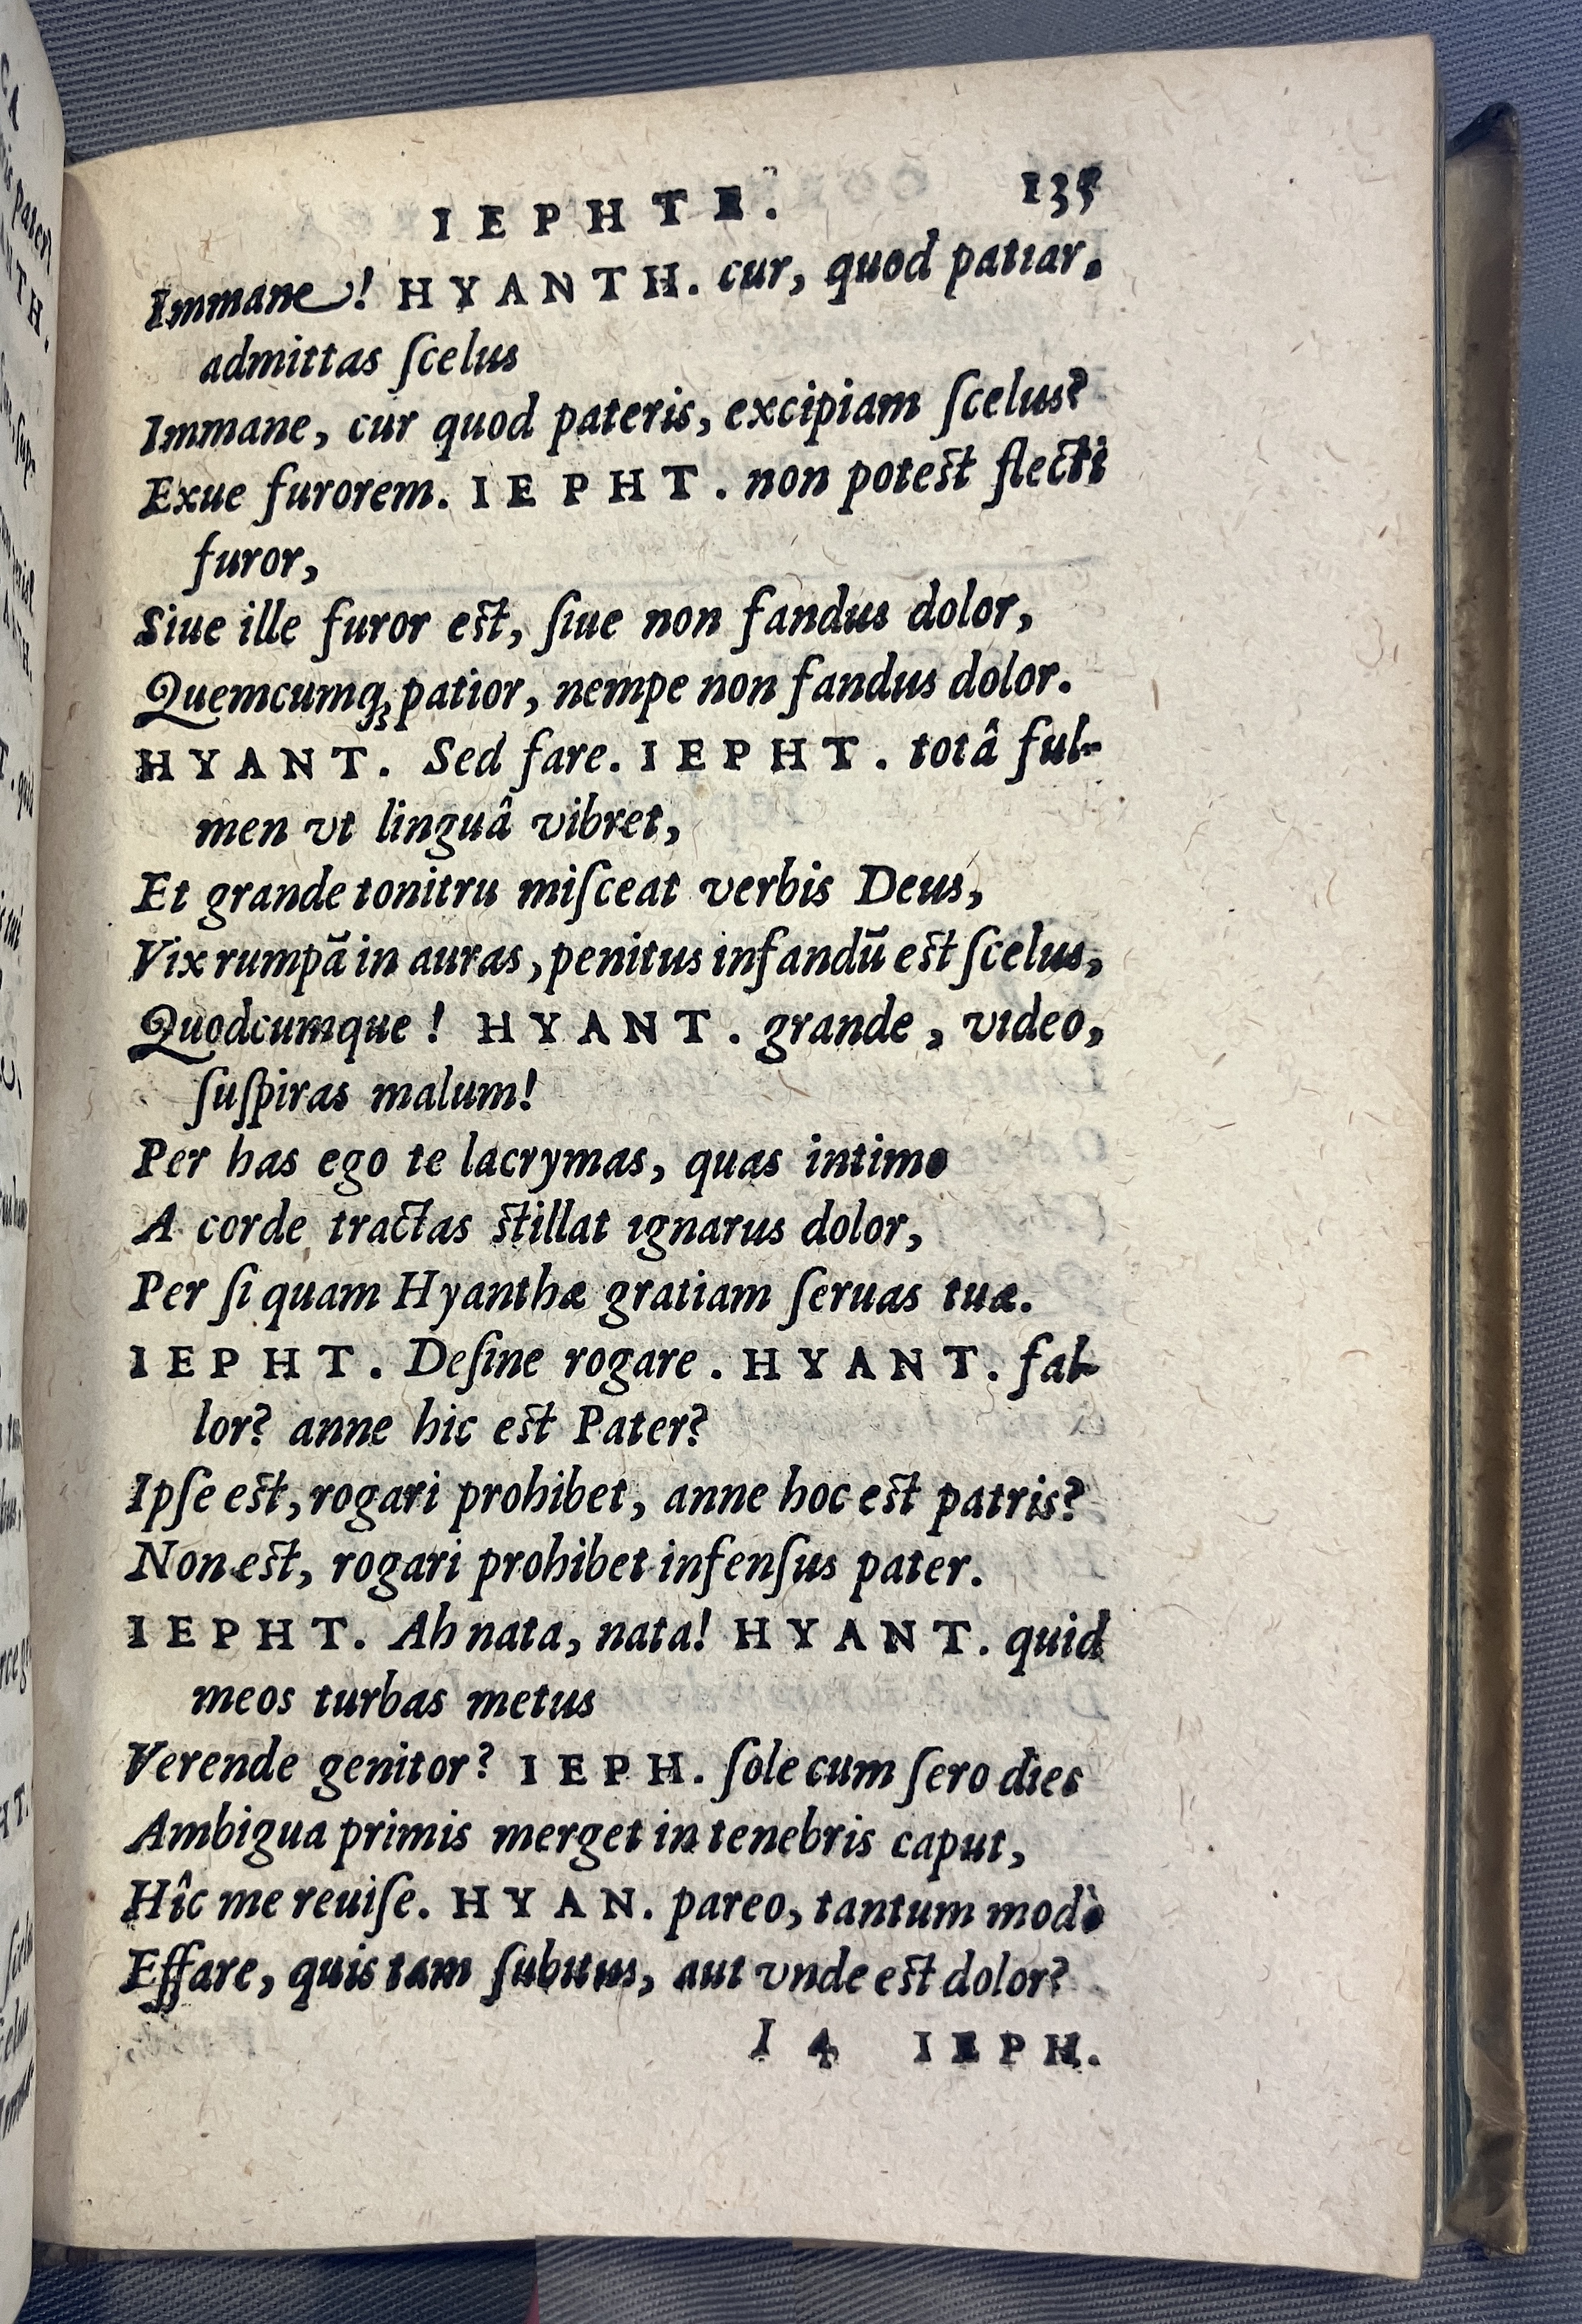 IEPHTE. 135
Immane! HYANTH. cur, quod patiar,
admittas ſcelus
Immane, cur quod pateris, excipiam ſcelus?
Exue furorem. IEPHT. non poteſt flecti
furor,
Siue ille furor eſt, ſiue non fandus dolor,
Quemcumq; patior, nempe non fandus dolor.
HYANT. Sed fare. IEPHT. totâ ful-
men vt linguâ vibret,
Et grande tonitru miſceat verbis Deus,
Vix rumpã in auras, penitus infandũ eſt ſcelus,
Quodcumque! HYANT. grande, video,
ſuſpiras malum!
Per has ego te lacrymas, quas intimo
A corde tractas ſtillat ignarus dolor,
Per ſi quam Hyanthæ gratiam ſeruas tuæ.
IEPHT. Deſine rogare. HYANT. fal-
lor? anne hic eſt Pater?
Ipſe eſt, rogari prohibet, anne hoc eſt patris?
Non eſt, rogari prohibet infenſus pater.
IEPHT. Ah nata, nata! HYANT. quid
meos turbas metus
Verende genitor? IEPH. ſole cum ſero dies
Ambigua primis merget in tenebris caput,
Hîc me reuiſe. HYAN. pareo, tantum modò
Effare, quis tam ſubitus, aut vnde eſt dolor?
I 4 IEPH.